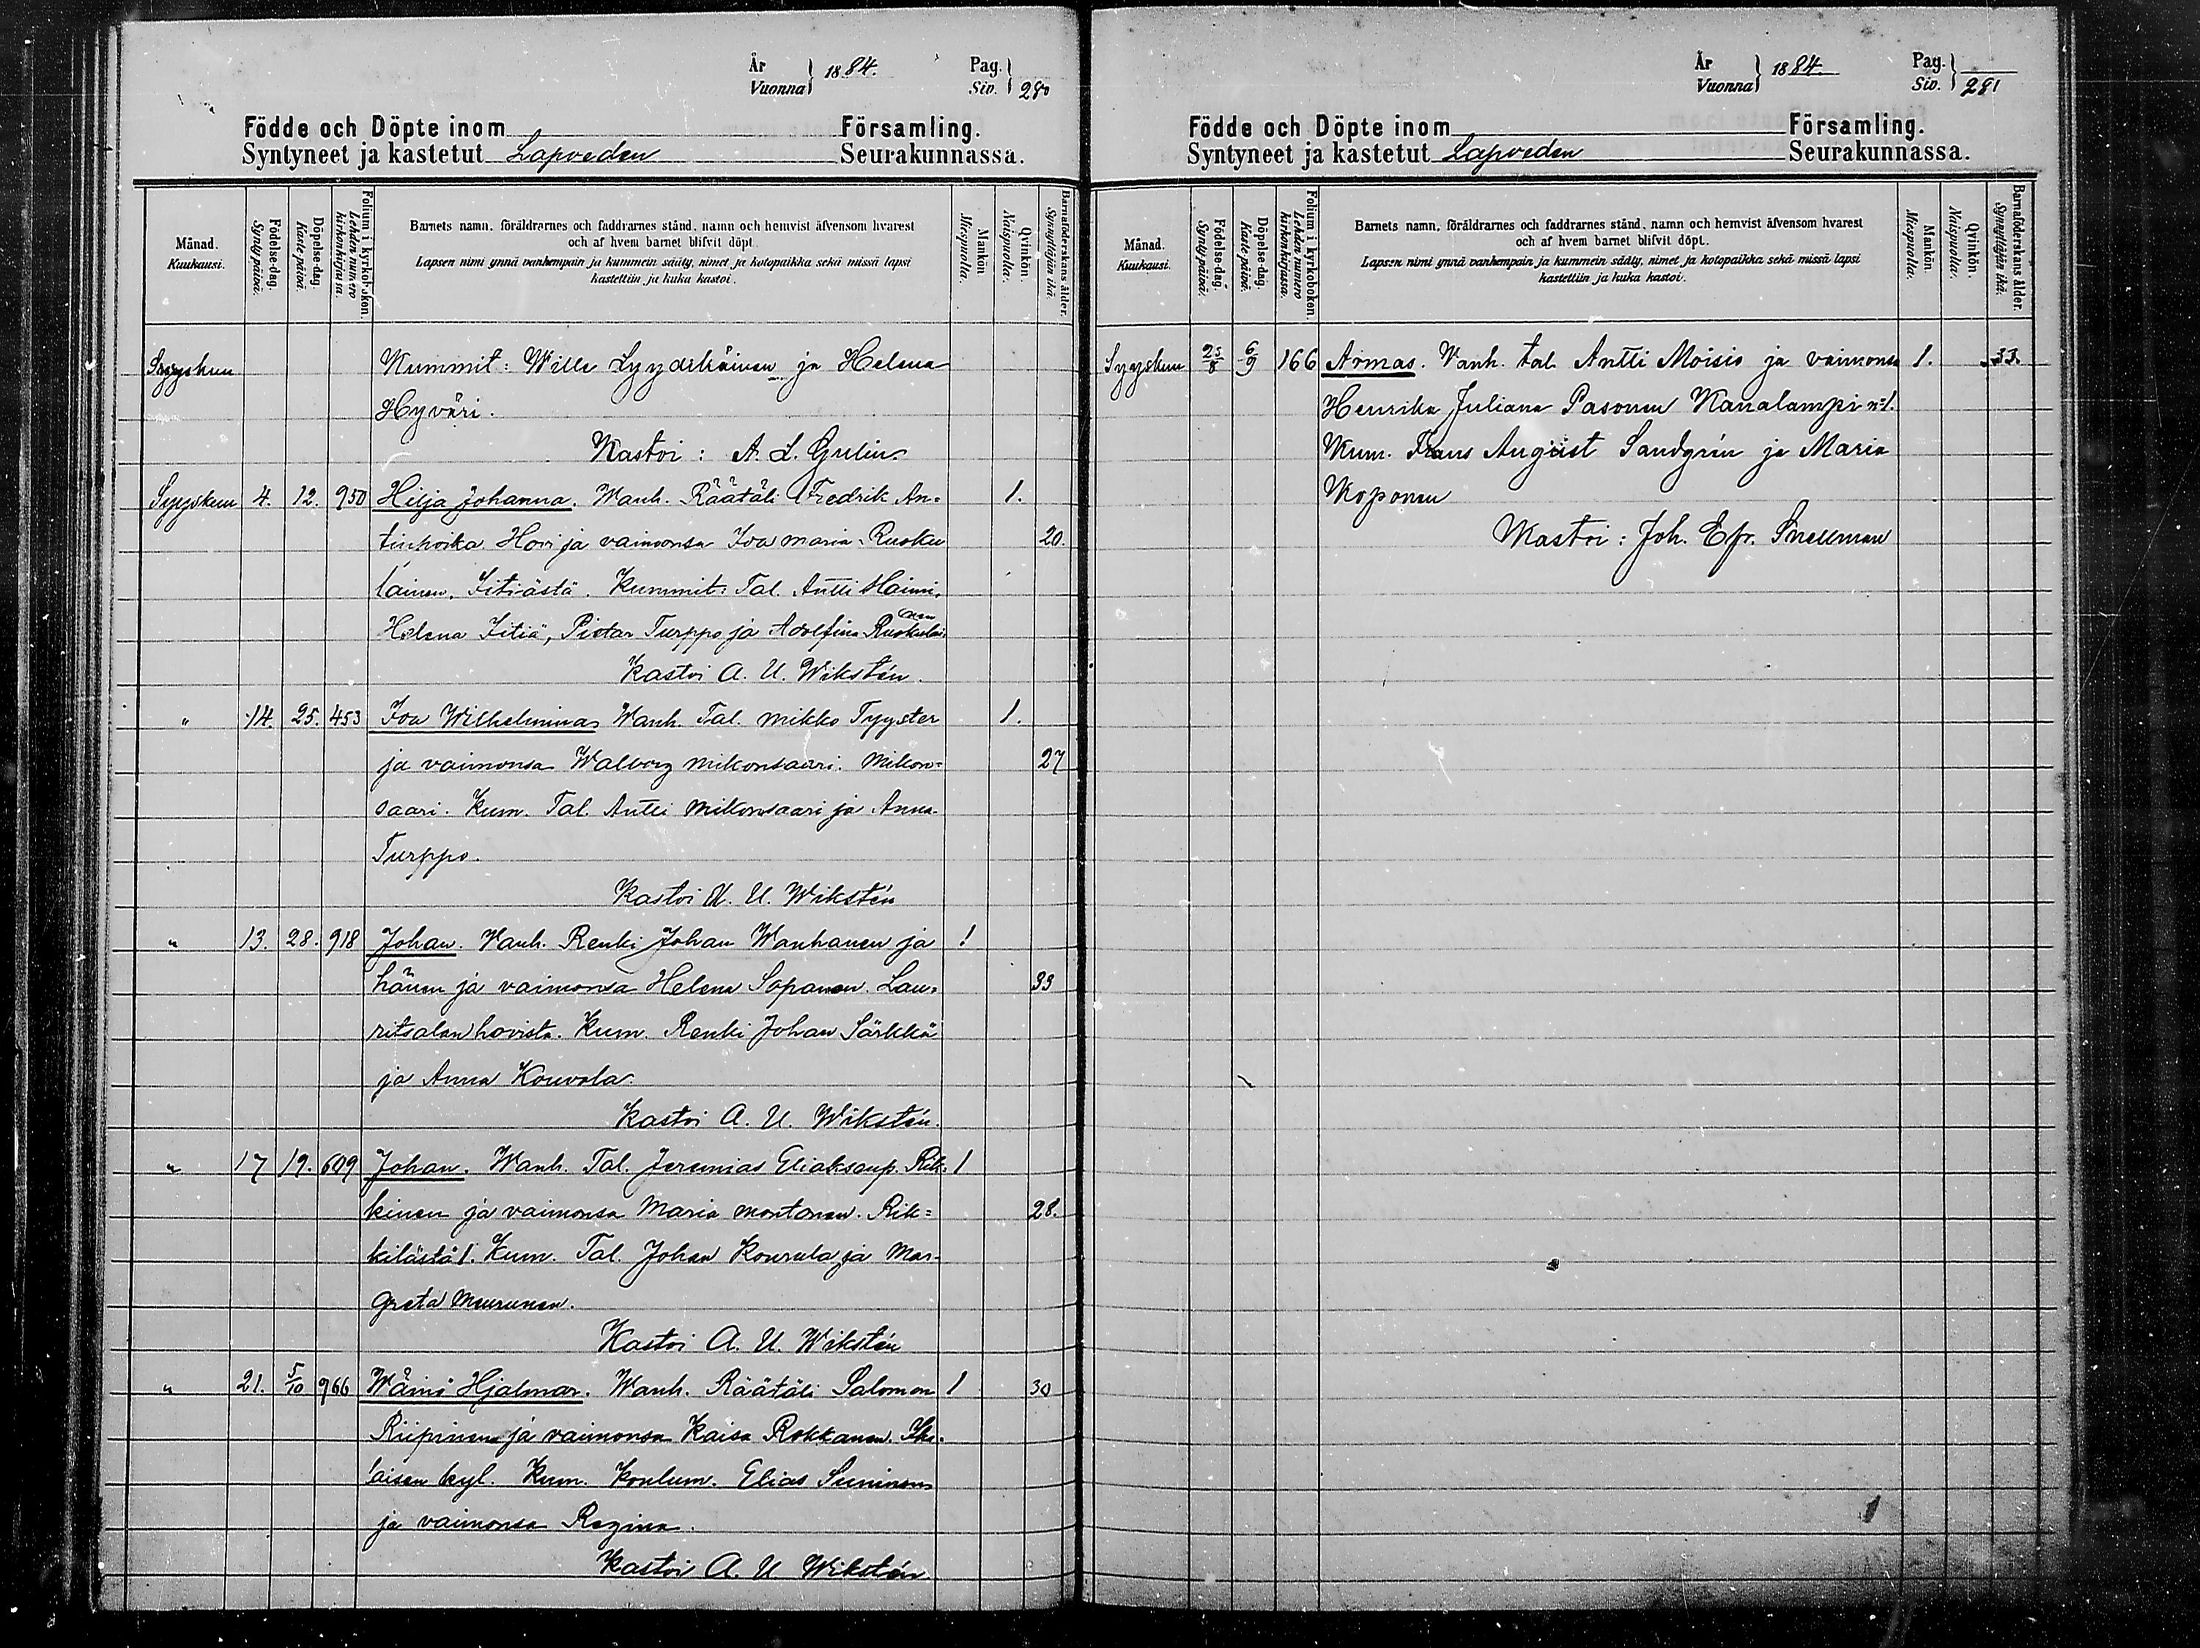 År
Vuonna } 1884.
Pag.
Siv. } 280
Födde och Döpte inom Församling.
Syntyneet ja kastetut Lapveden Seurakunnassa.
Månad. Kuukausi.
Födelse-dag. Synty-päivä.
Döpelse-dag. Kaste-päivä.
Folium i kyrkoboken. Lehden numero kirkonkirjassa.
Barnets namn, föräldrarnes och faddrarnes stånd, namn och hemvist äfvensom hvarest
och af hvem barnet blifvit döpt.
Lapsen nimi ynnä vanhempain ja kummein sääty, nimet ja kotopaikka sekä missä lapsi
kastettiin ja kuka kastoi.
Mankön. Miespuolia.
Qvinkön. Naispuolia.
Barnaföderskans ålder. Synnyttäjän ikä.
Syyskuu Kummit: Wille Lyydikäinen ja Helena
Hyväri.
Kastoi: A. L. Gulin.
Syyskuu 4. 12. 950 Hilja Johanna. Wanh. Räätäli Fredrik An= 1.
tinpoika Hovi ja vaimonsa Iva Maria Ruoku 20.
lainen. Iitiästä. Kummit: Tal. Antti Haimi,
Helena Iitiä, Pietar Turppo ja Adolfina Ruokolai
nen
Kastoi A. U. Wikstén.
" 14. 25. 453 Iva Wilhelmina. Wanh. Tal. Mikko Tyyster 1.
ja vaimonsa Walborg Mikonsaari. Mikon= 27
saari. Kum. Tal. Antti Mikonsaari ja Anna
Turppo.
Kastoi A. U. Wikstén
" 13. 28. 918 Johan. Wanh. Renki Johan Wanhanen ja 1
hänen ja vaimonsa Helena Sopanen. Lau= 33
ritsalan hovista. Kum. Renki Johan Särkkä
ja Anna Kouvola.
Kastoi A. U. Wikstén.
" 17 19. 609 Johan. Wanh. Tal. Jeremias Eliaksenp. Rik= 1
kinen ja vaimonsa Maria Montonen. Rik= 28.
kilästä 1. Kum. Tal. Johan Kourula ja Mar=
greta Muurunen.
Kastoi A. U. Wikstén
" 21. 5/10 966 Wäinö Hjalmar. Wanh. Räätäli Salomon 1 30
Riipinen ja vaimonsa Kaisa Rokkanen. Iha=
laisen kyl. Kum. Koulum. Elias Suninen
ja vaimonsa Regina.
Kastoi A. U. Wikstén
År
Vuonna } 1884
Pag.
Siv. } 281
Födde och Döpte inom Församling.
Syntyneet ja kastetut Lapveden Seurakunnassa.
Månad. Kuukausi.
Födelse-dag. Synty-päivä.
Döpelse-dag. Kaste-päivä.
Folium i kyrkoboken. Lehden numero kirkonkirjassa.
Barnets namn, föräldrarnes och faddrarnes stånd, namn och hemvist äfvensom hvarest
och af hvem barnet blifvit döpt.
Lapsen nimi ynnä vanhempain ja kummein sääty, nimet ja kotopaikka sekä missä lapsi
kastettiin ja kuka kastoi.
Mankön. Miespuolia.
Qvinkön. Naispuolia.
Barnaföderskans ålder. Synnyttäjän ikä.
Syyskuu 25/8 6/9 166 Armas. Wanh. tal. Antti Moisio ja vaimonsa 1. 33.
Henrika Juliana Pasonen Kanalampi n:1.
Kum. Frans August Sandgrén ja Maria
Koponen
Kastoi: Joh. Efr. Snellman